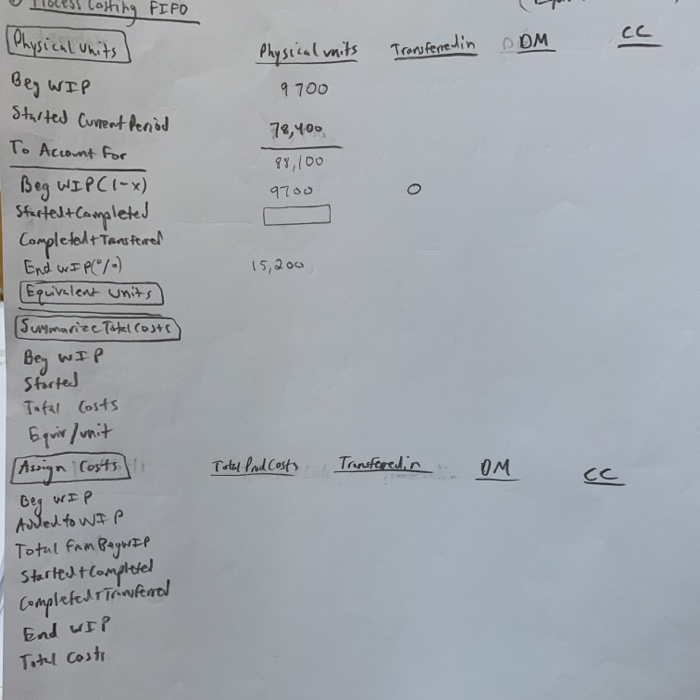 Process Costing FIFO
(Equiv
Physical Units Physical units Transferred in DM CC
Beg WIP 9700
Started Current Period 78,400
To Account For 88,100
Beg WIP (1-x) 9700 0
Started + Completed
Completed + Transferred
End WIP (%) 15,200
Equivalent units
Summarize Total Costs
Beg WIP
Started
Total Costs
Equiv/unit
Assign Costs Total Prod Costs Transferred in DM CC
Beg WIP
Added to WIP
Total from Beg WIP
Started + Completed
Completed + Transferred
End WIP
Total Costs